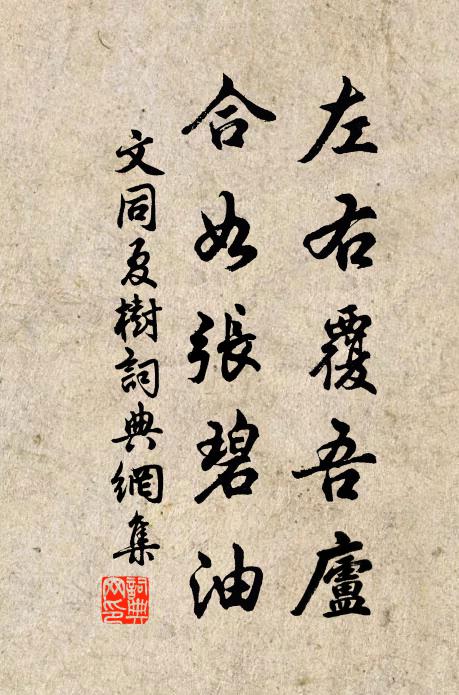 左右覆吾廬
合如張碧油
文同夏樹詞典網集
詞典
網印